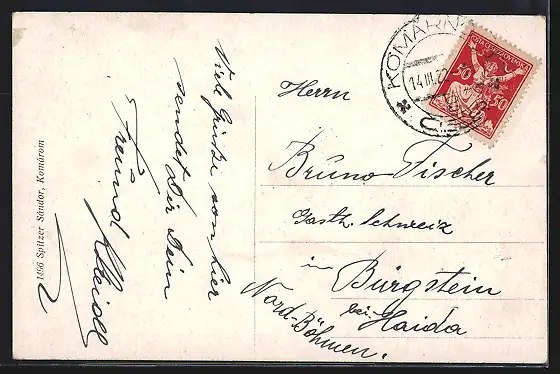 Viele Grüsse von hier
sendet Dir Dein
Freund
1496 Spitzer Sándor, Komárom
KOMÁRN
14.III.22
50 50
Herrn
Bruno Fischer
Gasth. Schweiz
in Bürgstein
bei Haida
Nord-Böhmen.